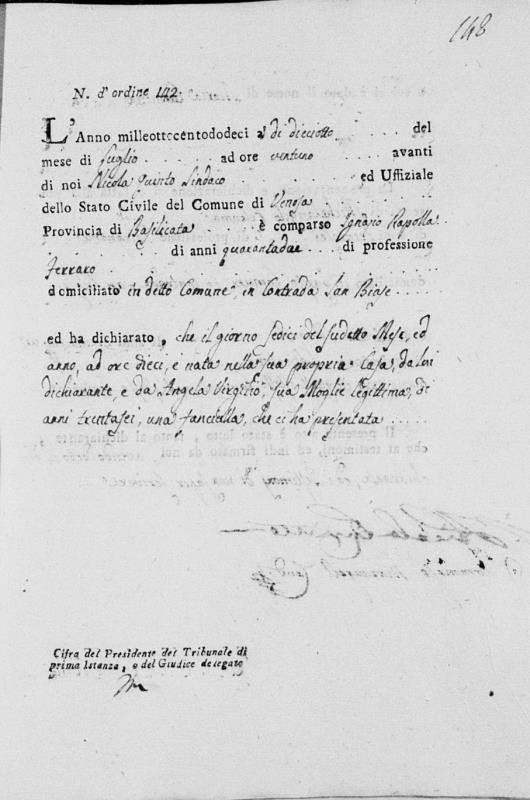 148
N. d'ordine 142.
L'Anno milleottocentododeci a' di dieciotto del
mese di Luglio ad ore ventuno avanti
di noi Nicola Quinto Sindaco ed Uffiziale
dello Stato Civile del Comune di Venosa
Provincia di Basilicata è comparso Ignazio Rapolla
di anni quarantadue di professione
Ferraro
domiciliato in detto Comune, in Contrada San Biase
ed ha dichiarato, che il giorno sedici del sudetto Mese, ed
anno, ad ore dieci, è nata nella sua propria Casa, da lui
dichiarante, e da Angela Virgilio, sua Moglie legittima, di
anni trentasei, una fanciulla, che ci ha presentata
Cifra del Presidente del Tribunale di
prima Istanza, o del Giudice delegato